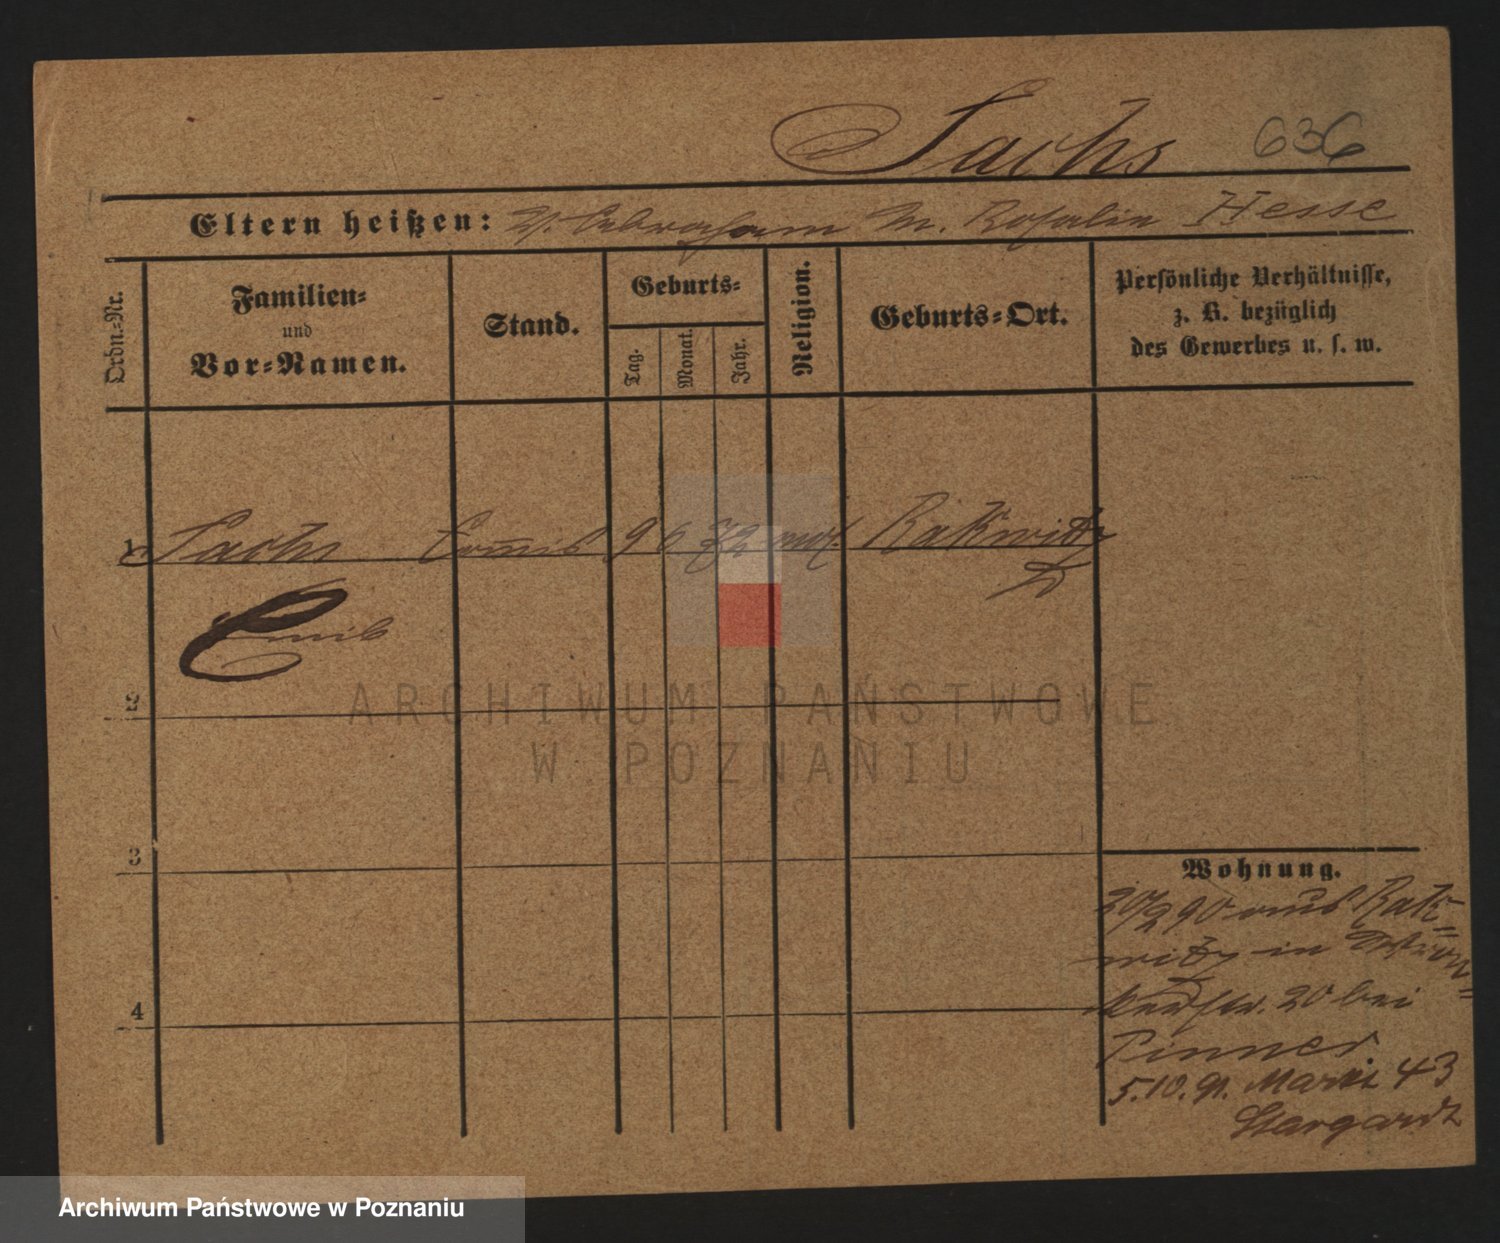 Sachs 636
Eltern heißen: V. Abraham M. Rosalie Hesse
Ordn.-Nr.
Familien-
und
Vor-Namen.
Stand.
Geburts-
Tag.
Monat.
Jahr.
Religion.
Geburts-Ort.
Persönliche Verhältnisse,
z. B. bezüglich
des Gewerbes u. s. w.
1 Sachs Commis 9 6 72 mos. Rakwitz
Emil
2
3
4
Wohnung.
20/2 90 aus Rak=
witz in Wron=
kerstr. 20 bei
Pinner
5.10.91. Markt 43
Stargardt
ARCHIWUM PAŃSTWOWE
W POZNANIU
Archiwum Państwowe w Poznaniu